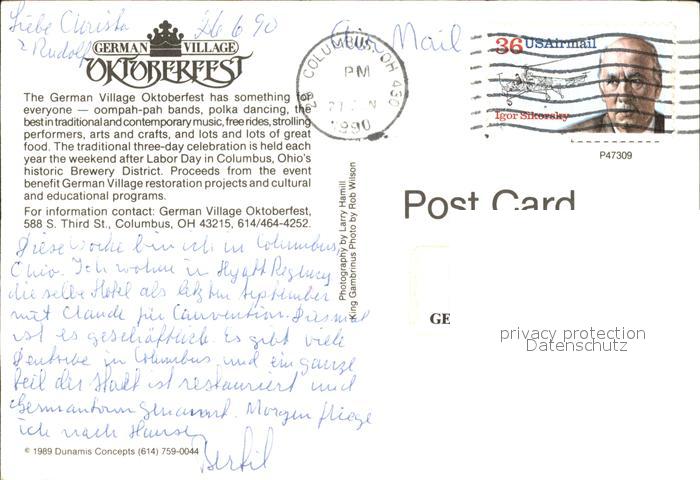 Liebe Christa 26 6 90
& Rudolf
Air Mail
GERMAN VILLAGE
OKTOBERFEST
COLUMBUS, OH 430
PM
1990
36 USAirmail
Igor Sikorsky
P47309
The German Village Oktoberfest has something for
everyone — oompah-pah bands, polka dancing, the
best in traditional and contemporary music, free rides, strolling
performers, arts and crafts, and lots and lots of great
food. The traditional three-day celebration is held each
year the weekend after Labor Day in Columbus, Ohio's
historic Brewery District. Proceeds from the event
benefit German Village restoration projects and cultural
and educational programs.
For information contact: German Village Oktoberfest,
588 S. Third St., Columbus, OH 43215, 614/464-4252.
Photography by Larry Hamill
King Gambrinus Photo by Rob Wilson
Post Card
GE
privacy protection
Datenschutz
Diese Woche bin ich in Columbus,
Ohio. Ich wohne in Hyatt Regency
die selbe Hotel als letzten September
mit Claude für Convention. Diesmal
ist es geschäftlich. Es gibt viele
Deutsche in Columbus und ein ganze
Teil der Stadt ist restauriert und
Germantown genannt. Morgen fliege
ich nach Hause,
Bertil
© 1989 Dunamis Concepts (614) 759-0044